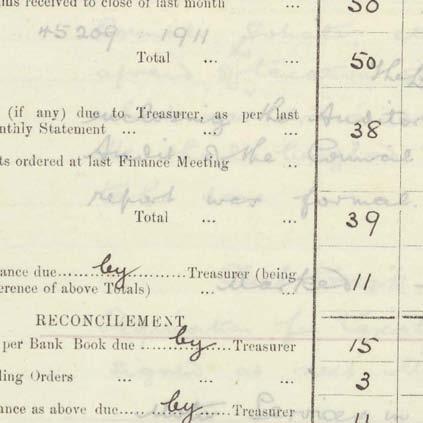 ms received to close of last month ... 50
45209 1911
Total ... ... 50
the
(if any) due to Treasurer, as per last
nthly Statement ... ... ... 38
the Auditor
ts ordered at last Finance Meeting ..
the Council
report was formal.
Total ... ... 39
ance due......by...........Treasurer (being
erence of above Totals) ... ... 11
RECONCILEMENT
per Bank Book due ......by.....Treasurer 15
ling Orders ... ... ... 3
ance as above due.......by......Treasurer 11
Services in